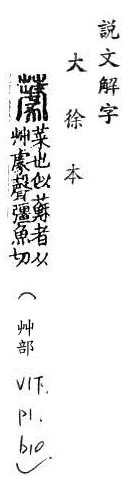 說文解字
大徐本
菜也似蘇者从
艸豦聲彊魚切
（艸部
VIT.
Pl.
bio.）